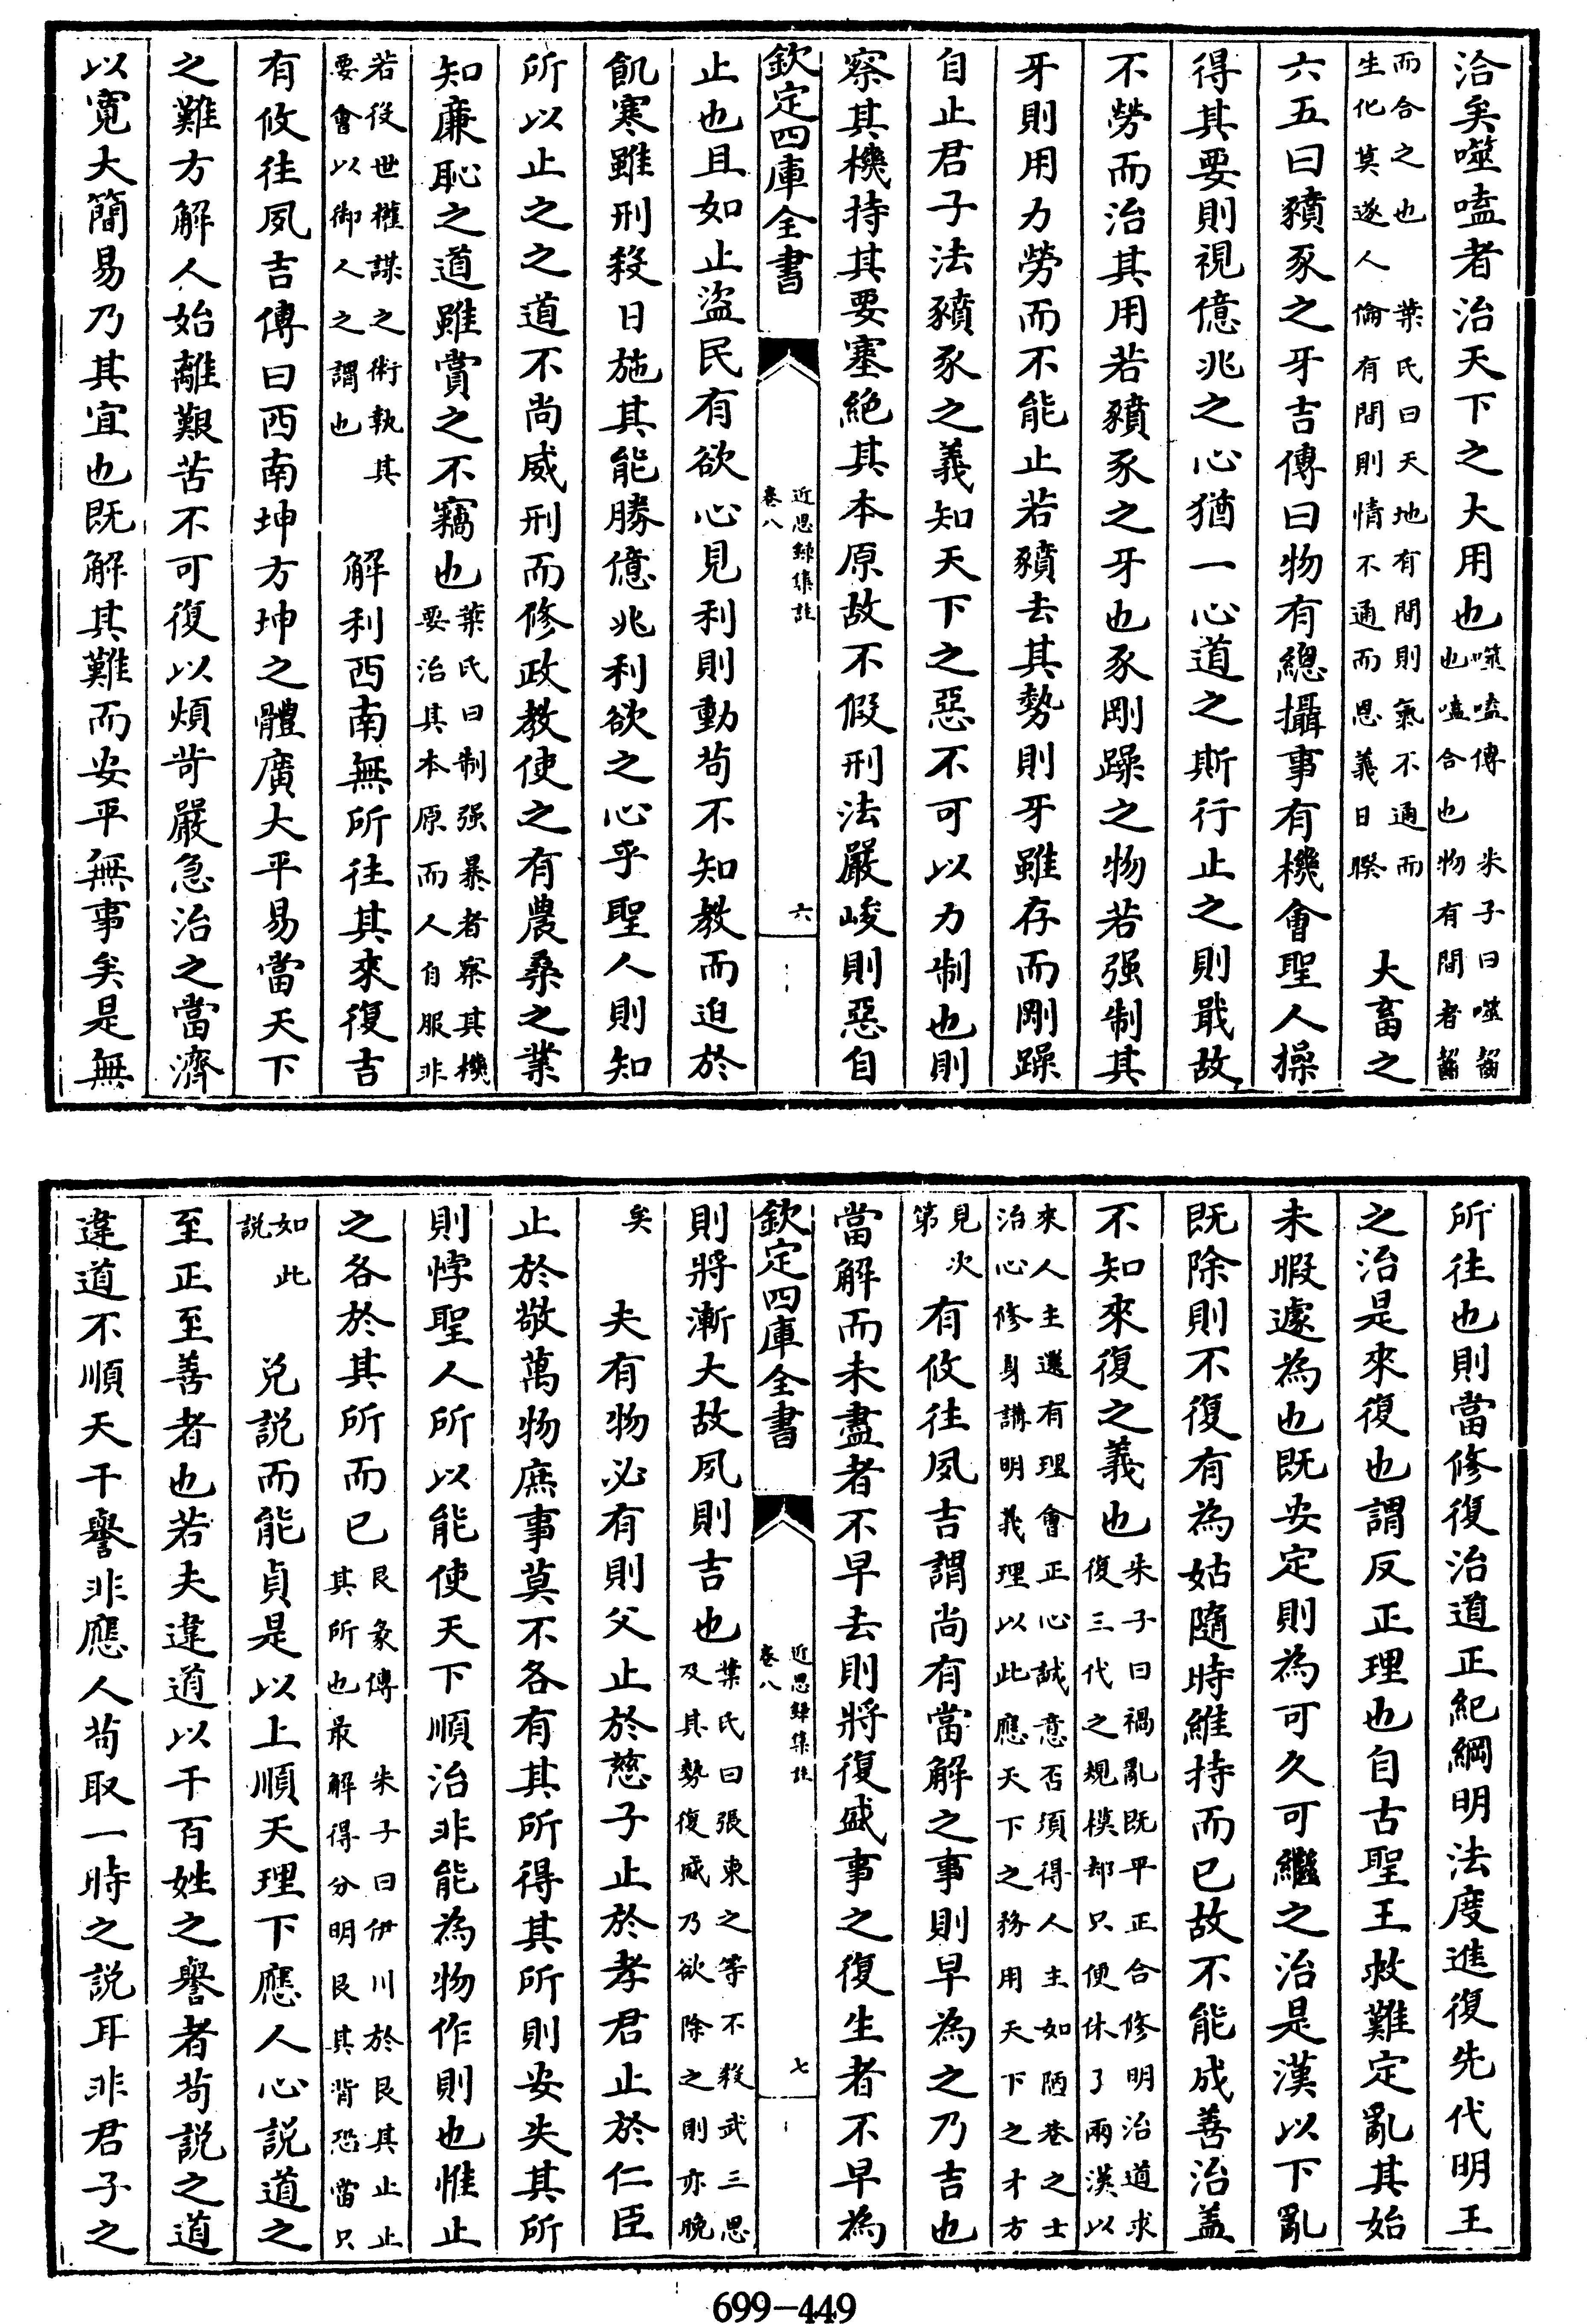 洽矣噬嗑者治天下之大用也噬嗑傳　朱子曰噬齧也嗑合也物有間者齧
而合之也　葉氏曰天地有間則氣不通而生化莫遂人倫有間則情不通而恩義日睽　大畜之
六五曰豶豕之牙吉傳曰物有總攝事有機會聖人操
得其要則視億兆之心猶一心道之斯行止之則戢故
不勞而治其用若豶豕之牙也豕剛躁之物若强制其
牙則用力勞而不能止若豶去其勢則牙雖存而剛躁
自止君子法豶豕之義知天下之惡不可以力制也則
察其機持其要塞絶其本原故不假刑法嚴峻則惡自
欽定四庫全書　近思録集註卷八　六
止也且如止盜民有欲心見利則動苟不知教而迫於
飢寒雖刑殺日施其能勝億兆利欲之心乎聖人則知
所以止之之道不尚威刑而修政教使之有農桑之業
知廉恥之道雖賞之不竊也葉氏曰制强暴者察其機要治其本原而人自服非
若後世權謀之術執其要會以御人之謂也　解利西南無所往其來復吉
有攸往夙吉傳曰西南坤方坤之體廣大平易當天下
之難方解人始離艱苦不可復以煩苛嚴急治之當濟
以寬大簡易乃其宜也既解其難而安平無事矣是無
所往也則當修復治道正紀綱明法度進復先代明王
之治是來復也謂反正理也自古聖王救難定亂其始
未暇遽為也既安定則為可久可繼之治是漢以下亂
既除則不復有為姑隨時維持而已故不能成善治盖
不知來復之義也朱子曰禍亂既平正合修明治道求復三代之規模却只便休了兩漢以
來人主還有理會正心誠意否須得人主如陋巷之士治心修身講明義理以此應天下之務用天下之才方
見次第　有攸往夙吉謂尚有當解之事則早為之乃吉也
當解而未盡者不早去則將復盛事之復生者不早為
欽定四庫全書　近思録集註卷八　七
則將漸大故夙則吉也葉氏曰張柬之等不殺武三思及其勢復盛乃欲除之則亦晚
矣　夫有物必有則父止於慈子止於孝君止於仁臣
止於敬萬物庶事莫不各有其所得其所則安失其所
則悖聖人所以能使天下順治非能為物作則也惟止
之各於其所而已艮彖傳　朱子曰伊川於艮其止止其所也最解得分明艮其背恐當只
如此説　兑説而能貞是以上順天理下應人心説道之
至正至善者也若夫違道以干百姓之譽者苟説之道
違道不順天干譽非應人苟取一時之説耳非君子之
699-449